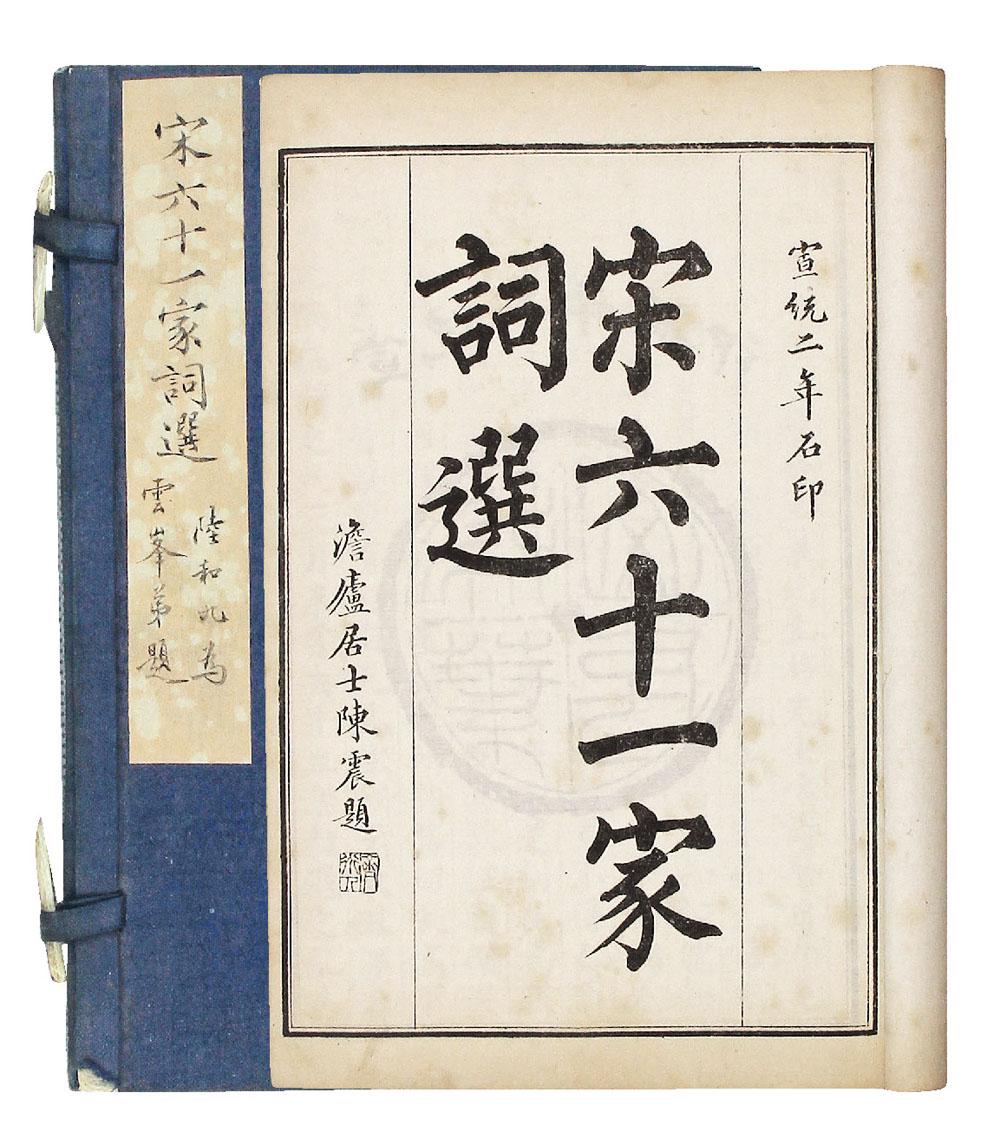 宣統二年石印
宋六十一家
詞選
澹廬居士陳震題
宋六十一家詞選
陸和九為
雲峯弟題